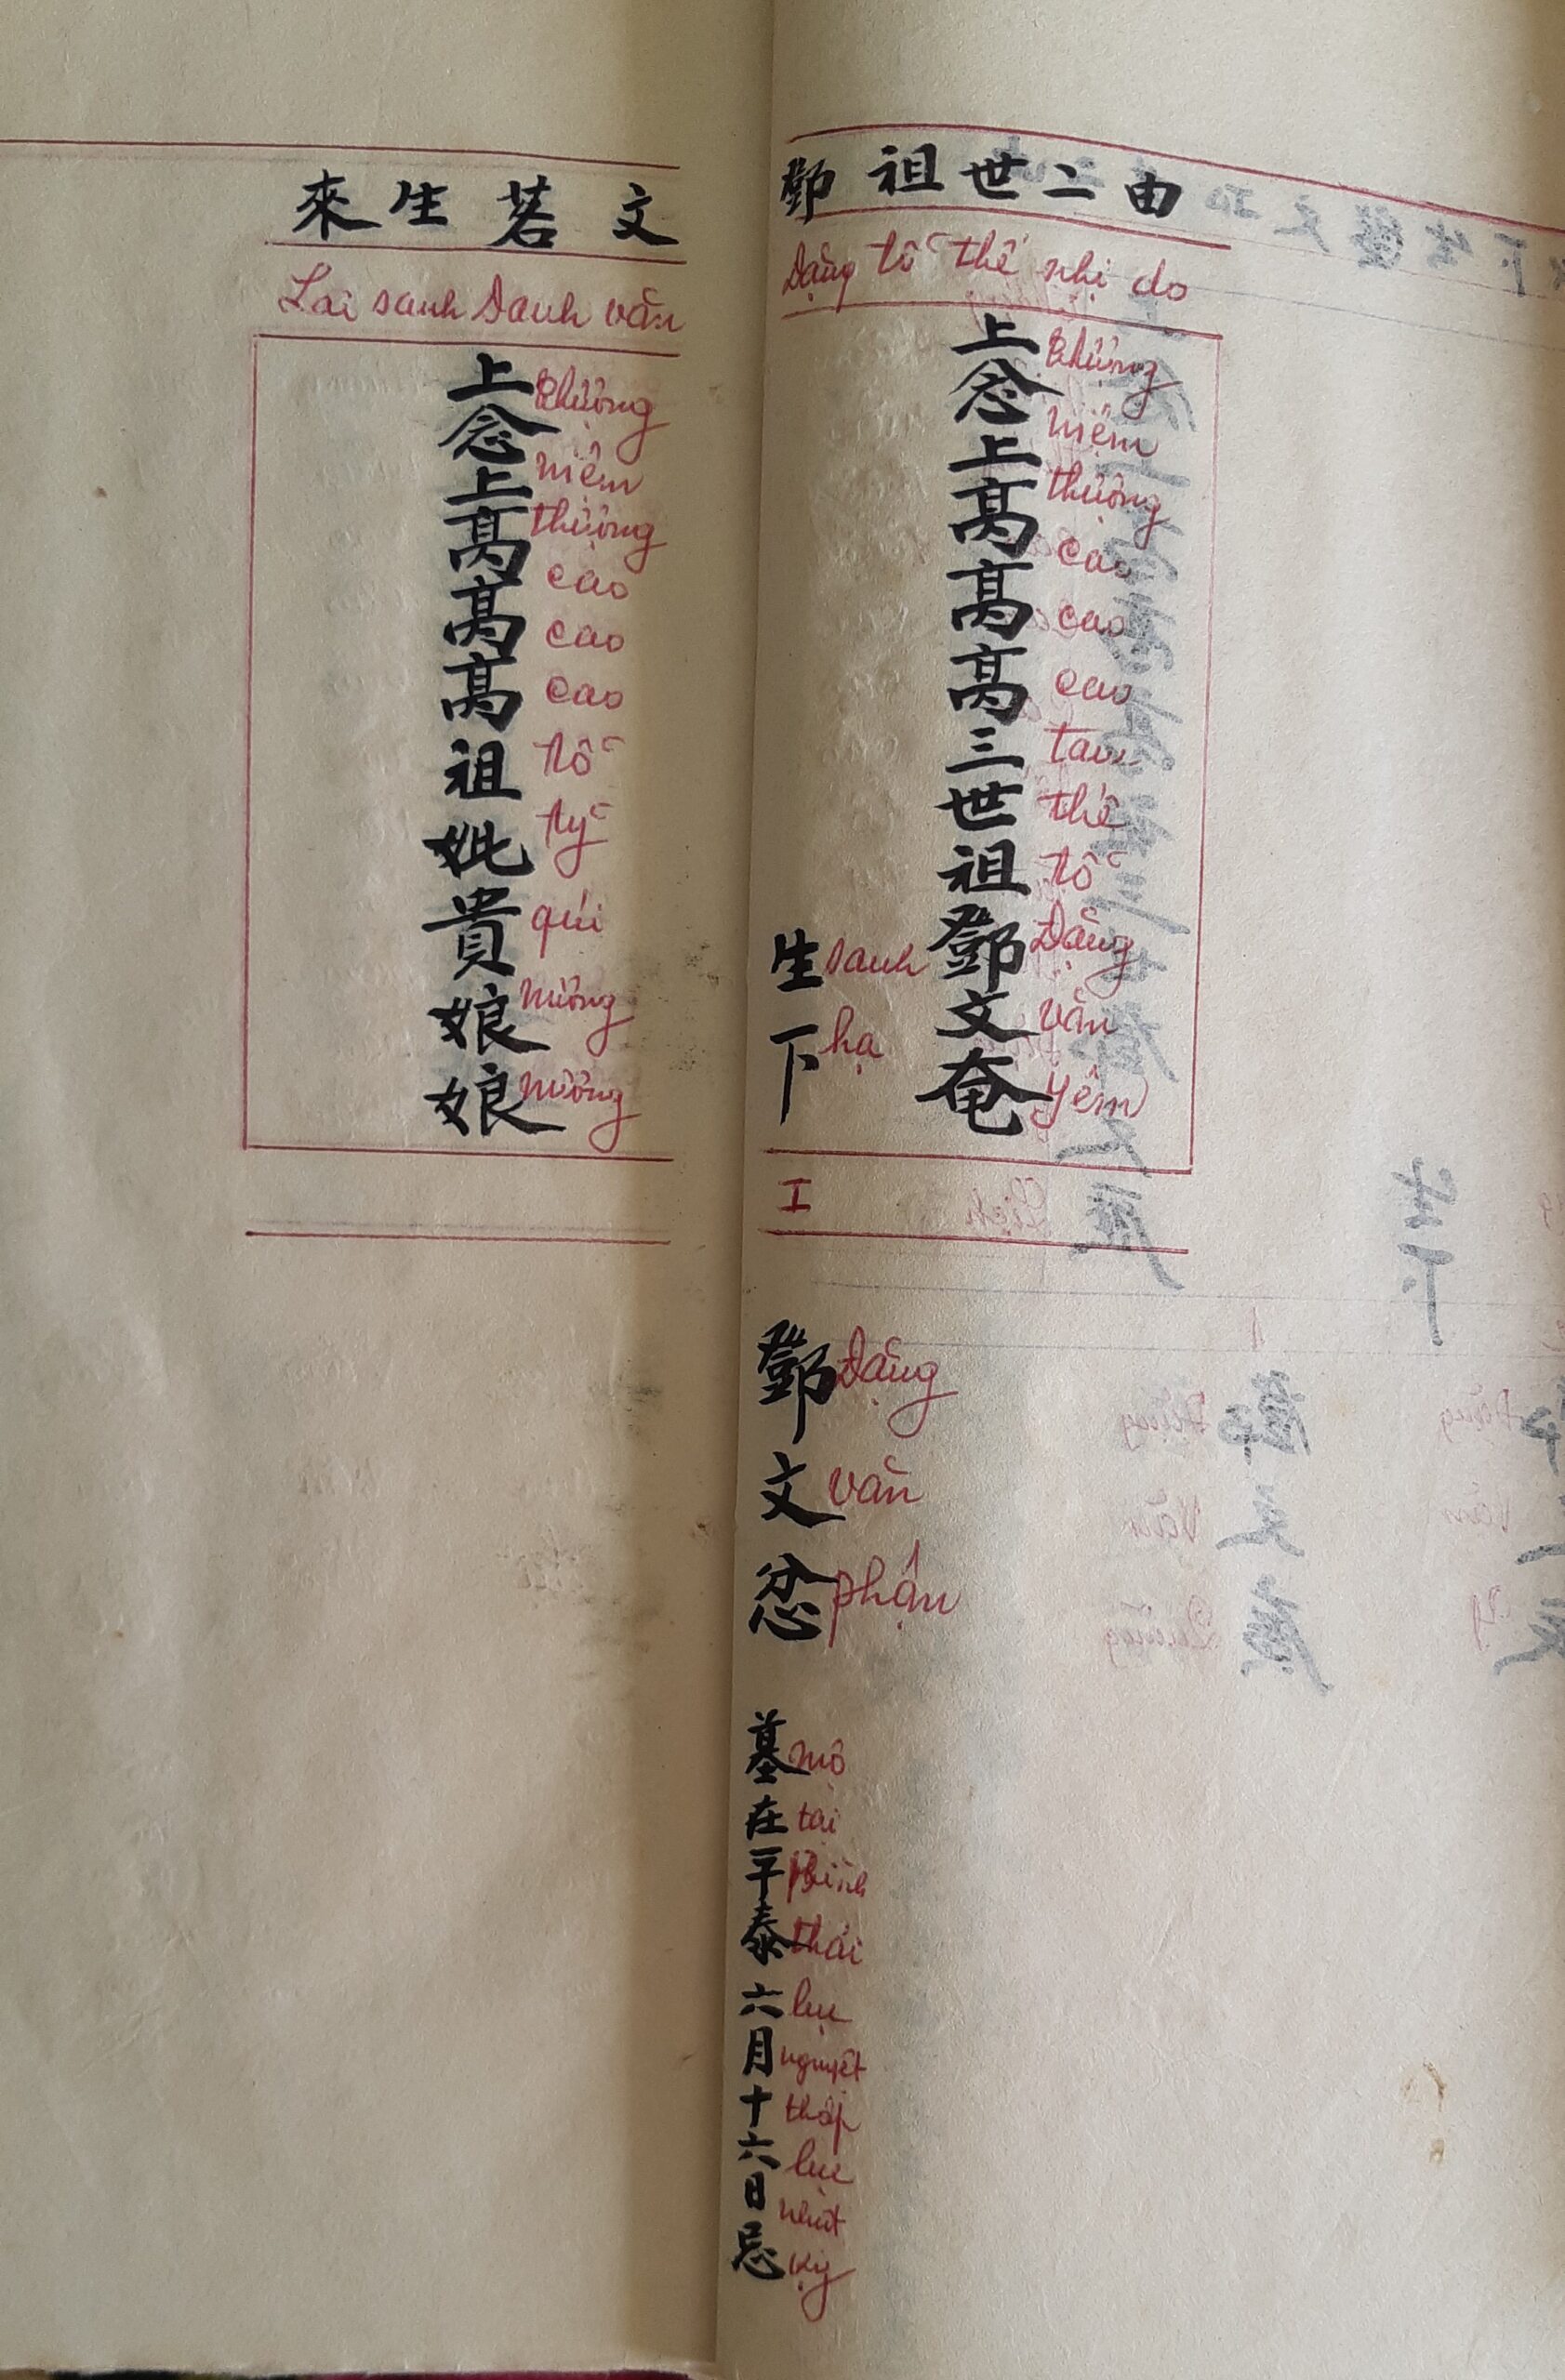 由二世祖鄧
Đặng tổ thế nhị do
上念上高高高三世祖鄧文奄
Thượng niệm thượng cao cao cao tam thế tổ Đặng văn yêm
生下
sanh hạ
I
鄧文忿
Đặng văn phận
墓在平泰六月十六日忌
mộ tại bình thái lục nguyệt thập lục nhật kỵ
文茗生來
Lai sanh Danh văn
上念上高高高祖妣貴娘娘
Thượng niệm thượng cao cao cao tổ tỷ quí nương nương